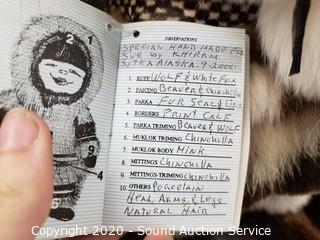 OBSERVATIONS
SPECIAL HAND MADE FOR
SUE BY KHIRAM
SITKA ALASKA. 9-2000
1. RUFF WOLF & White FOX
2. FACING Beaver & Chinchilla
3. PARKA FUR SEAL &
4. BORDERS PRINT CALF
5. PARKA TRIMING Beaver & WOLF
6. MUKLOK TRIMING CHINCHILLA
7. MUKLOK BODY MINK
8. MITTINGS CHINCHILLA
9. MITTINGS-TRIMING CHINCHILLA
10. OTHERS Porcelain
Head, Arms, & Legs
NATURAL HAIR
2
1
9
4
Copyright © 2020 - Sound Auction Service